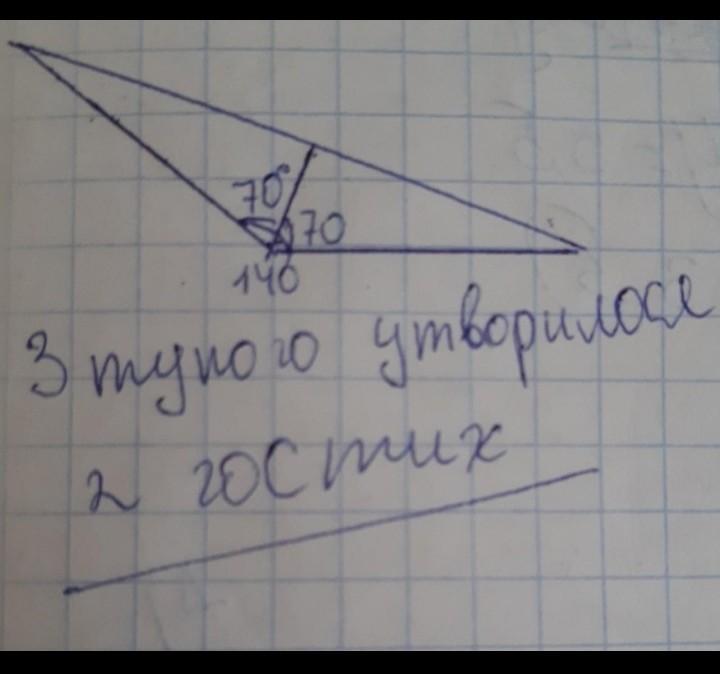 70°
70
140
З тупого утворилося
2 гостих